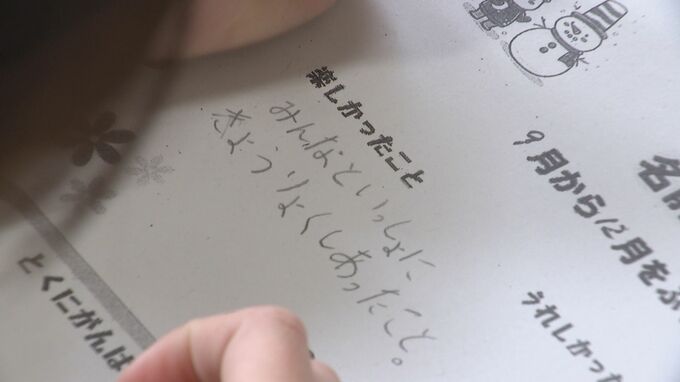 名前
9月から12月をふ
うれしかった
楽しかったこと
みんなといっしょに
きょうりょくしあったこと。
とくにがんば